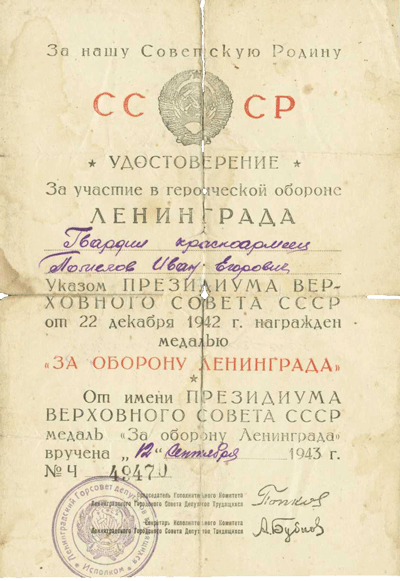 За нашу Советскую Родину
СССР
★ УДОСТОВЕРЕНИЕ ★
За участие в героической обороне
ЛЕНИНГРАДА
Гвардии красноармеец
Иван Егорович
Указом ПРЕЗИДИУМА ВЕР-
ХОВНОГО СОВЕТА СССР
от 22 декабря 1942 г. награжден
медалью
«ЗА ОБОРОНУ ЛЕНИНГРАДА»
★
От имени ПРЕЗИДИУМА
ВЕРХОВНОГО СОВЕТА СССР
медаль «За оборону Ленинграда»
вручена „12“ сентября 1943 г.
№ Ч
Председатель Исполнительного Комитета
Ленинградского Городского Совета Депутатов Трудящихся
Попков
Секретарь Исполнительного Комитета
Ленинградского Городского Совета Депутатов Трудящихся
А. Бубнов
Ленинградский Горсовет депутатов
Исполком